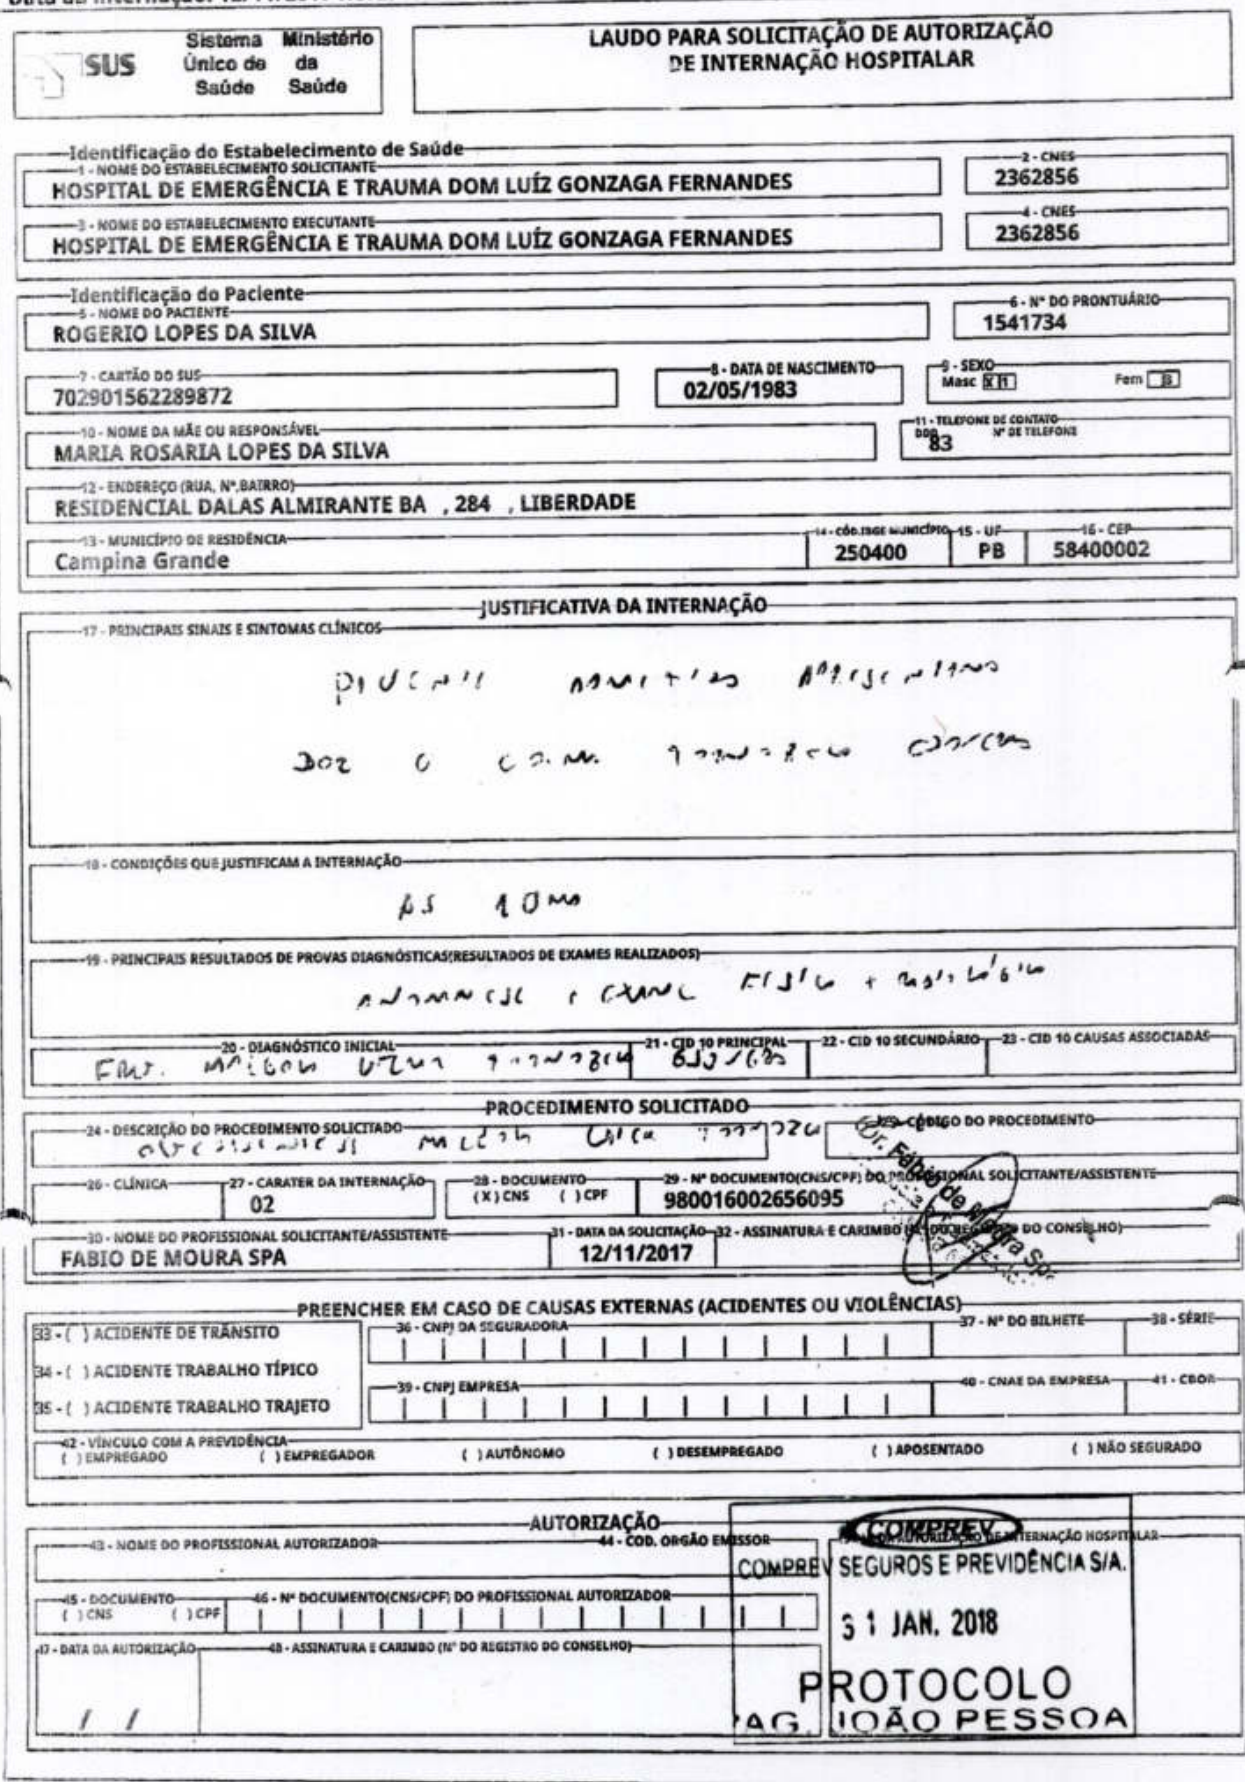 SUS
Sistema Único de Saúde
Ministério da Saúde
LAUDO PARA SOLICITAÇÃO DE AUTORIZAÇÃO
DE INTERNAÇÃO HOSPITALAR
Identificação do Estabelecimento de Saúde
1 - NOME DO ESTABELECIMENTO SOLICITANTE
HOSPITAL DE EMERGÊNCIA E TRAUMA DOM LUÍZ GONZAGA FERNANDES
2 - CNES
2362856
3 - NOME DO ESTABELECIMENTO EXECUTANTE
HOSPITAL DE EMERGÊNCIA E TRAUMA DOM LUÍZ GONZAGA FERNANDES
4 - CNES
2362856
Identificação do Paciente
5 - NOME DO PACIENTE
ROGERIO LOPES DA SILVA
6 - N° DO PRONTUÁRIO
1541734
7 - CARTÃO DO SUS
702901562289872
8 - DATA DE NASCIMENTO
02/05/1983
9 - SEXO
Masc X 1 Fem 3
10 - NOME DA MÃE OU RESPONSÁVEL
MARIA ROSARIA LOPES DA SILVA
11 - TELEFONE DE CONTATO
DDD N° DE TELEFONE
83
12 - ENDEREÇO (RUA, N°,BAIRRO)
RESIDENCIAL DALAS ALMIRANTE BA , 284 , LIBERDADE
13 - MUNICÍPIO DE RESIDÊNCIA
Campina Grande
14 - CÓD.IBGE MUNICÍPIO
250400
15 - UF
PB
16 - CEP
58400002
JUSTIFICATIVA DA INTERNAÇÃO
17 - PRINCIPAIS SINAIS E SINTOMAS CLÍNICOS
DOR
18 - CONDIÇÕES QUE JUSTIFICAM A INTERNAÇÃO
19 - PRINCIPAIS RESULTADOS DE PROVAS DIAGNÓSTICAS(RESULTADOS DE EXAMES REALIZADOS)
EXAME FISICO +
20 - DIAGNÓSTICO INICIAL
21 - CID 10 PRINCIPAL
22 - CID 10 SECUNDÁRIO
23 - CID 10 CAUSAS ASSOCIADAS
PROCEDIMENTO SOLICITADO
24 - DESCRIÇÃO DO PROCEDIMENTO SOLICITADO
25 - CÓDIGO DO PROCEDIMENTO
26 - CLÍNICA
27 - CARATER DA INTERNAÇÃO
02
28 - DOCUMENTO
(X) CNS ( ) CPF
29 - N° DOCUMENTO(CNS/CPF) DO PROFISSIONAL SOLICITANTE/ASSISTENTE
980016002656095
Dr. Fábio de Moura Spa
30 - NOME DO PROFISSIONAL SOLICITANTE/ASSISTENTE
FABIO DE MOURA SPA
31 - DATA DA SOLICITAÇÃO
12/11/2017
32 - ASSINATURA E CARIMBO (N° DO REGISTRO DO CONSELHO)
PREENCHER EM CASO DE CAUSAS EXTERNAS (ACIDENTES OU VIOLÊNCIAS)
33 - ( ) ACIDENTE DE TRÂNSITO
34 - ( ) ACIDENTE TRABALHO TÍPICO
35 - ( ) ACIDENTE TRABALHO TRAJETO
36 - CNPJ DA SEGURADORA
37 - N° DO BILHETE
38 - SÉRIE
39 - CNPJ EMPRESA
40 - CNAE DA EMPRESA
41 - CBOR
42 - VÍNCULO COM A PREVIDÊNCIA
( ) EMPREGADO ( ) EMPREGADOR ( ) AUTÔNOMO ( ) DESEMPREGADO ( ) APOSENTADO ( ) NÃO SEGURADO
AUTORIZAÇÃO
43 - NOME DO PROFISSIONAL AUTORIZADOR
44 - COD. ORGÃO EMISSOR
AUTORIZAÇÃO DE INTERNAÇÃO HOSPITALAR
45 - DOCUMENTO
( ) CNS ( ) CPF
46 - N° DOCUMENTO(CNS/CPF) DO PROFISSIONAL AUTORIZADOR
47 - DATA DA AUTORIZAÇÃO
/ /
48 - ASSINATURA E CARIMBO (N° DO REGISTRO DO CONSELHO)
COMPREV
COMPREV SEGUROS E PREVIDÊNCIA S/A.
31 JAN. 2018
PROTOCOLO
AG. JOÃO PESSOA